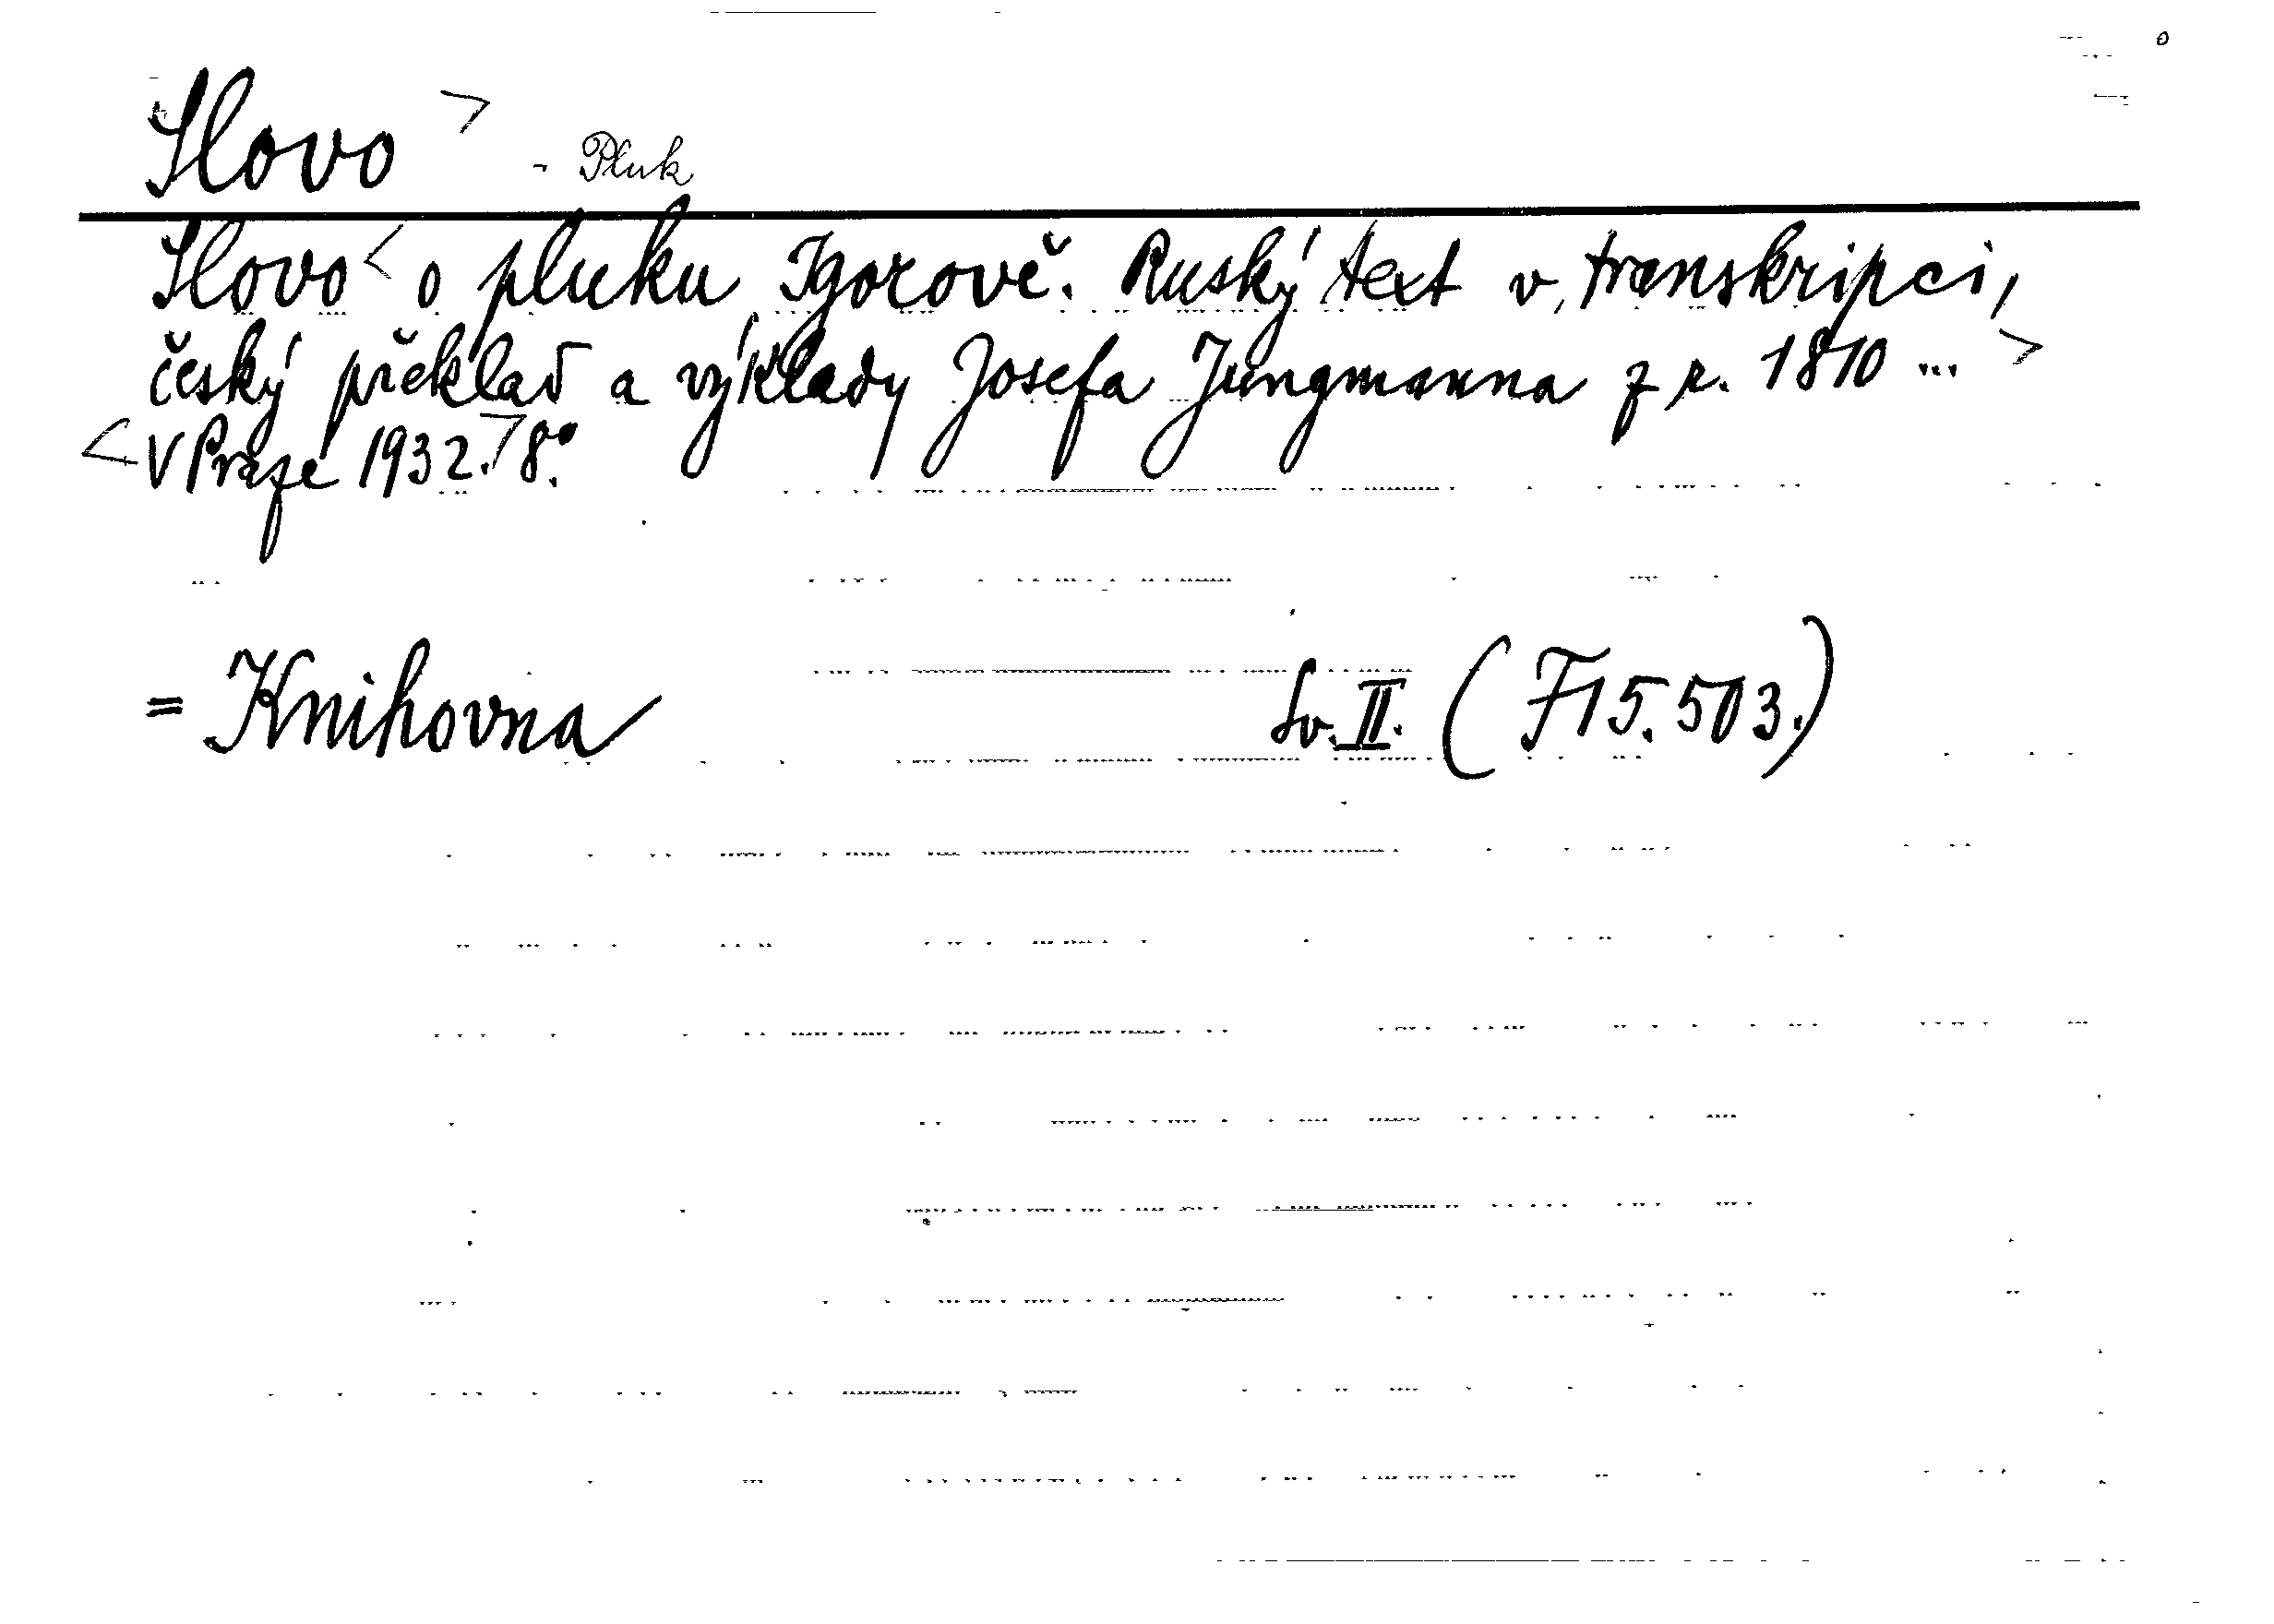 Slovo > - Pluk
Slovo < o pluku Igorově. Ruský text v transkripci,
český překlad a výklady Josefa Jungmanna z r. 1810 ... >
< V Praze 1932. > 8°.
= Knihovna Sv. II. (F 15.503.)